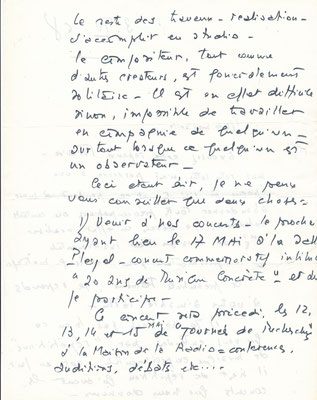 Le reste des travaux - réalisation -
s'accomplit en studio -
Le compositeur, tout comme
d'autres créateurs, est foncièrement
solitaire - Il est en effet difficile
sinon, impossible de travailler
en compagnie de quelqu'un -
surtout lorsque ce quelqu'un est
un observateur -
Ceci étant dit, je ne peux
vous conseiller que deux choses -
1) Venir à nos concerts - le prochain
ayant lieu le 17 MAI à la Salle
Pleyel - concert commémoratif intitulé
"20 ans de Musique Concrète" et où
je participe -
Ce concert sera précédé, les 12,
13, 14 et 15 MAI de "Journées de Recherches"
à la Maison de la Radio = conférences,
auditions, débats etc....